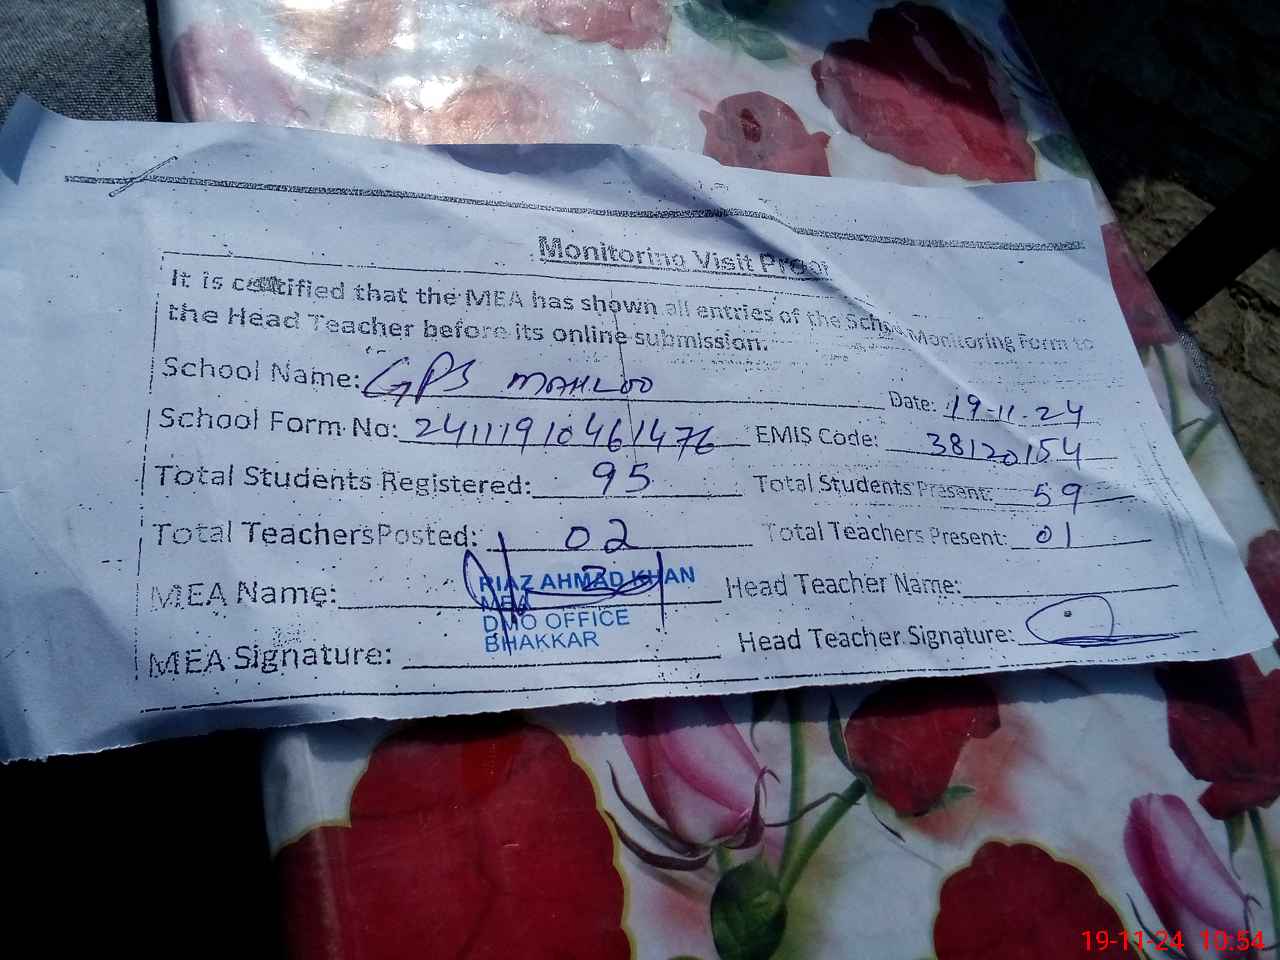 Monitoring Visit Proof
It is certified that the MEA has shown all entries of the School Monitoring Form to
the Head Teacher before its online submission.
School Name: GPS MAHLOO Date: 19-11-24
School Form No: 24111910461476 EMIS Code: 38120154
Total Students Registered: 95 Total Students Present: 59
Total Teachers Posted: 02 Total Teachers Present: 01
MEA Name: RIAZ AHMAD KHAN Head Teacher Name:
MEA
DMO OFFICE
BHAKKAR
MEA Signature: Head Teacher Signature:
19-11-24 10:54